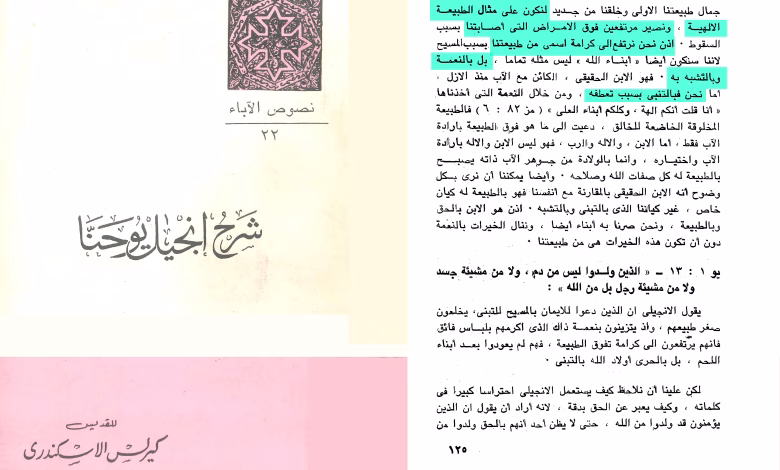 نصوص الآباء
٢٢
شرح إنجيل يوحنا
للقديس
كيرلس الاسكندرى
جمال طبيعتنا الاولى وخلقنا من جديد لنكون على مثال الطبيعة
الالهية ، ونصير مرتفعين فوق الامراض التى أصابتنا بسبب
السقوط ٠ اذن نحن نرتفع الى كرامة أسمى من طبيعتنا بسبب المسيح
لاننا سنكون أيضا « أبناء الله » ليس مثله تماما ، بل بالنعمة
وبالتشبه به ٠ فهو الابن الحقيقى ، الكائن مع الآب منذ الازل ،
أما نحن فبالتبنى بسبب تعطفه ، ومن خلال النعمة التى أخذناها
« أنا قلت أنكم الهة ، وكلكم أبناء العلى » ( مز ٨٢ : ٦ ) فالطبيعة
المخلوقة الخاضعة للخالق ، دعيت الى ما هو فوق الطبيعة بارادة
الآب فقط ، أما الابن ، والاله والرب ، فهو ليس الابن والاله بارادة
الآب واختياره ، وانما بالولادة من جوهر الآب ذاته يصبح
بالطبيعة له كل صفات الله وصلاحه ٠ وأيضا يمكننا أن نرى بكل
وضوح أنه الابن الحقيقى بالمقارنة مع أنفسنا فهو بالطبيعة له كيان
خاص ، غير كياننا الذى بالتبنى وبالتشبه ٠ اذن هو الابن بالحق
وبالطبيعة ، ونحن صرنا به أبناء أيضا ، وننال الخيرات بالنعمة
دون أن تكون هذه الخيرات هى من طبيعتنا ٠
يو ١ : ١٣ ــ « الذين ولدوا ليس من دم ، ولا من مشيئة جسد
ولا من مشيئة رجل بل من الله » :
يقول الانجيلى ان الذين دعوا للايمان بالمسيح للتبنى، يخلعون
صغر طبيعهم ، واذ يتزينون بنعمة ذاك الذى اكرمهم بلباس فائق
فانهم يرتفعون الى كرامة تفوق الطبيعة ، فهم لم يعودوا بعد أبناء
اللحم ، بل بالحرى أولاد الله بالتبنى ٠
لكن علينا أن نلاحظ كيف يستعمل الانجيلى احتراسا كبيرا فى
كلماته ، وكيف يعبر عن الحق بدقة ، لانه أراد أن يقول ان الذين
يؤمنون قد ولدوا من الله ، حتى لا يظن أحد أنهم بالحق ولدوا من
١٢٥